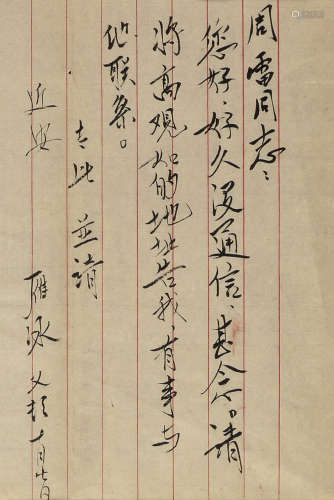 周雷同志：
您好，好久没通信，甚念。请
将高观如的地址告我，有事与
他联系。
专此 并请
近安
十月七日